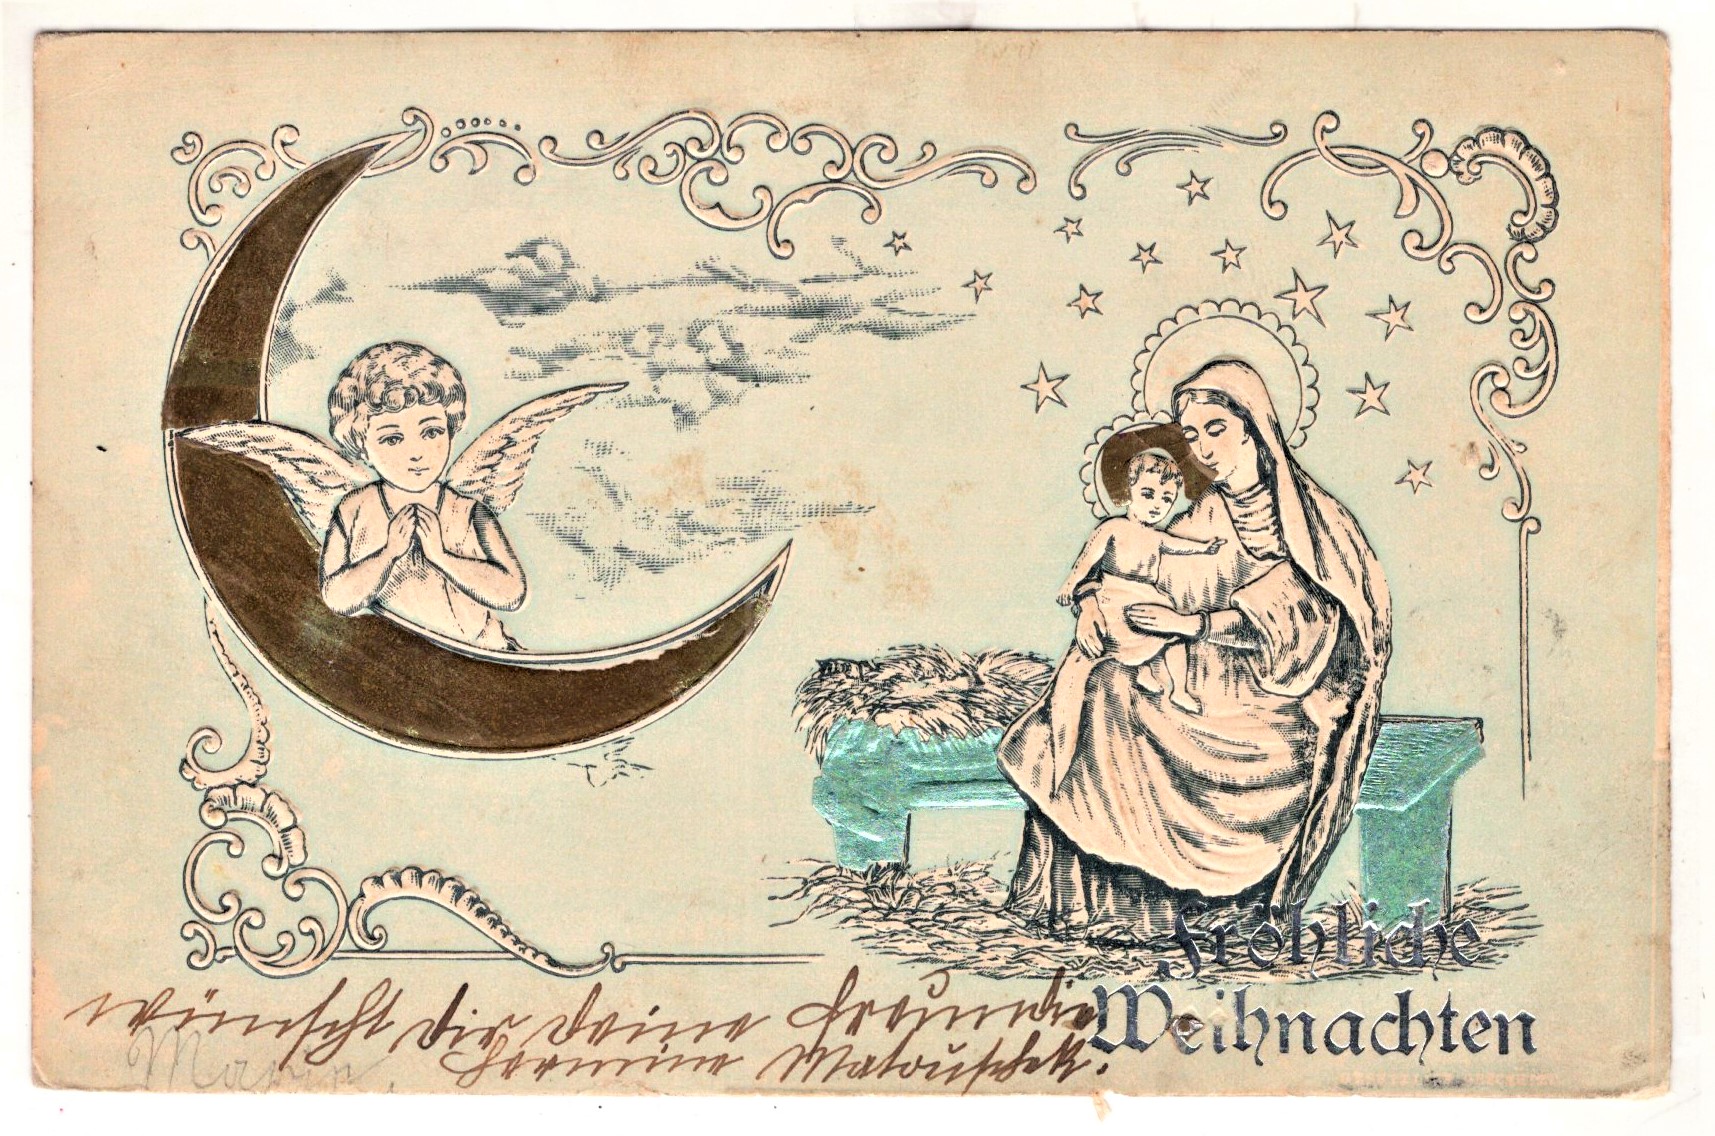 Fröhliche
Weihnachten
wünscht dir deine Freundin
Hermine Matouschek.